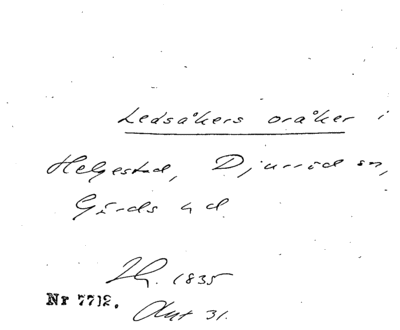 Ledsåkers oråker i
Helgestad, Djurröd sn,
Gärds hd.
1835
Nr 7712. Akt 31.